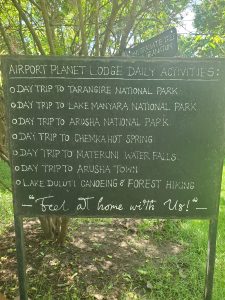 AIRPORT PLANET LODGE DAILY ACTIVITIES:
DAY TRIP TO TARANGIRE NATIONAL PARK
DAY TRIP TO LAKE MANYARA NATIONAL PARK
DAY TRIP TO ARUSHA NATIONAL PARK
DAY TRIP TO CHEMKA HOT SPRING
DAY TRIP TO MATERUNI WATER FALLS
DAY TRIP TO ARUSHA TOWN
LAKE DULUTI CANOEING & FOREST HIKING
-"Feel at home with Us!"-